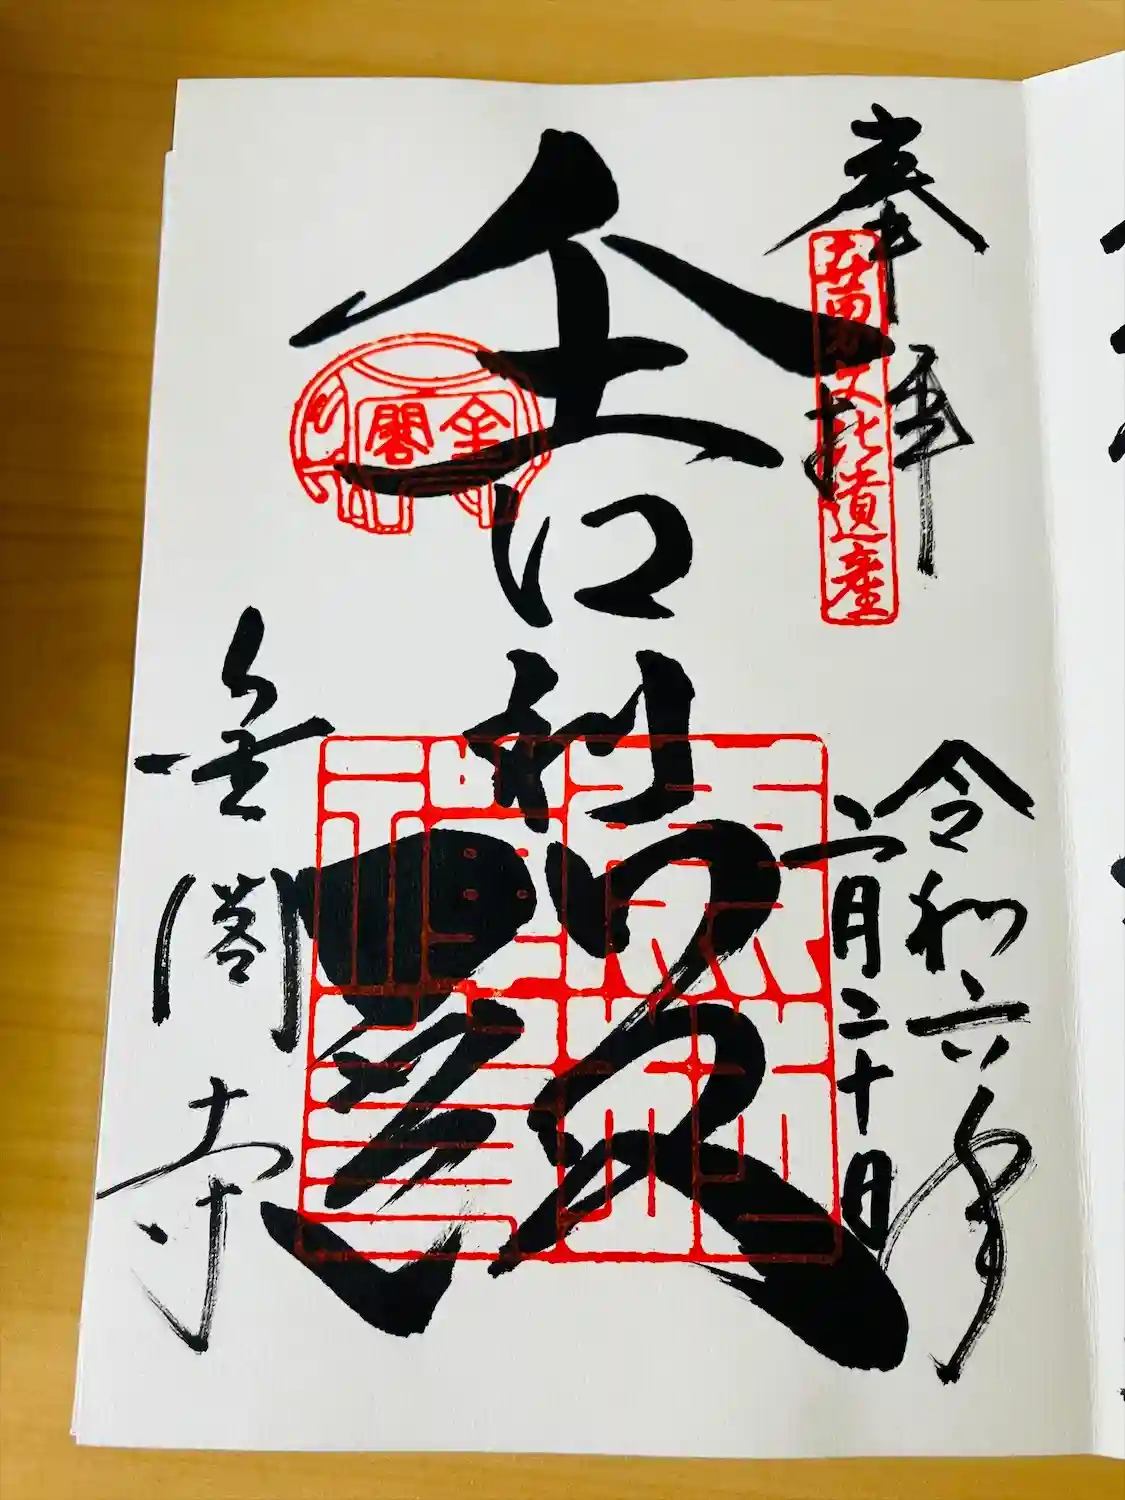 奉拝
世界文化遺産
舎利殿
金閣
令和六年
六月二十日
金閣寺